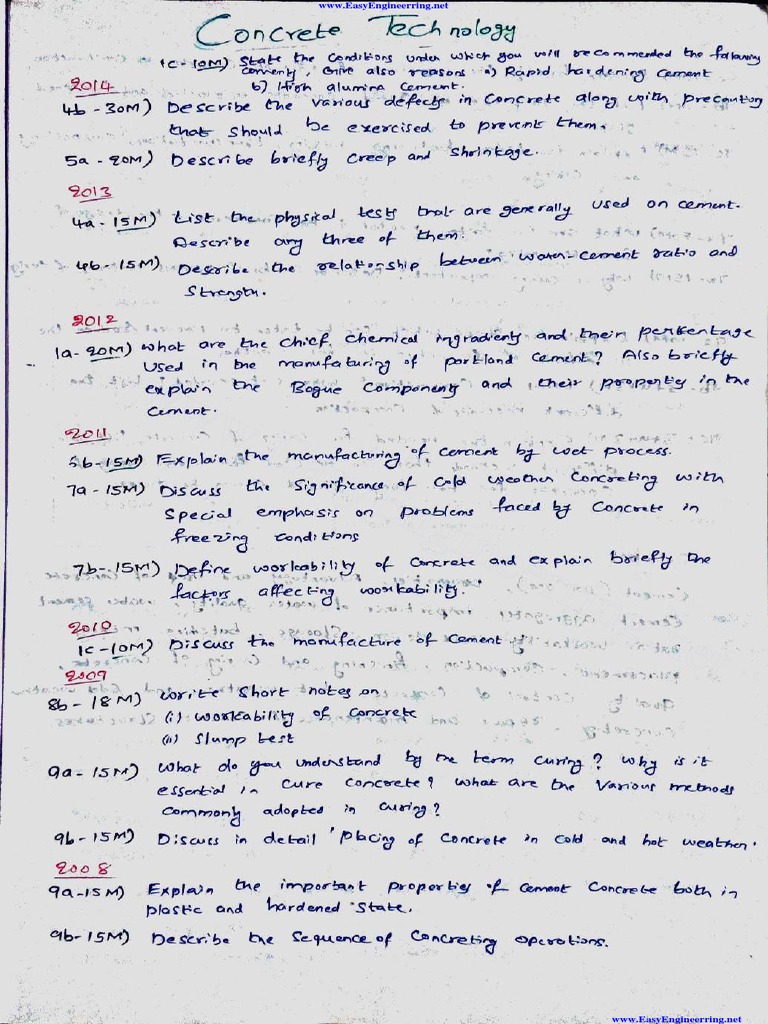 www.EasyEngineerring.net
Concrete Technology
1c-10M) State the Conditions under which you will recommended the following
cements, Give also reasons a) Rapid hardening cement
2014
b) High alumina cement.
4b-30M) Describe the various defects in concrete along with precaution
that should be exercised to prevent them.
5a-20M) Describe briefly creep and shrinkage.
2013
4a-15M) List the physical tests that are generally used on cement.
Describe any three of them.
4b-15M) Describe the relationship between water-cement ratio and
Strength.
2012
1a-20M) what are the chief chemical ingradients and their perkentage
used in the manufaturing of portland cement? Also briefly
explain the Bogue Components and their property in the
cement.
2011
5b-15M) Explain the manufacturing of cement by wet process.
7a-15M) Discuss the Significance of Cold weather Concreting with
Special emphasis on problems faced by concrete in
freezing conditions
7b-15M) Define workability of concrete and explain briefly the
factors affecting workability.
2010
1c-10M) Discuss the manufacture of cement
2009
8b-18M) write short notes on
(i) workability of concrete
(ii) Slump test
9a-15M) What do you understand by the term curing? Why is it
essential in cure concrete? what are the various methods
commonly adopted in curing?
9b-15M) Discuss in detail placing of concrete in cold and hot weather.
2008
9a-15M) Explain the important properties of cement concrete both in
plastic and hardened state.
9b-15M) Describe the sequence of concreting operations.
www.EasyEngineerring.net